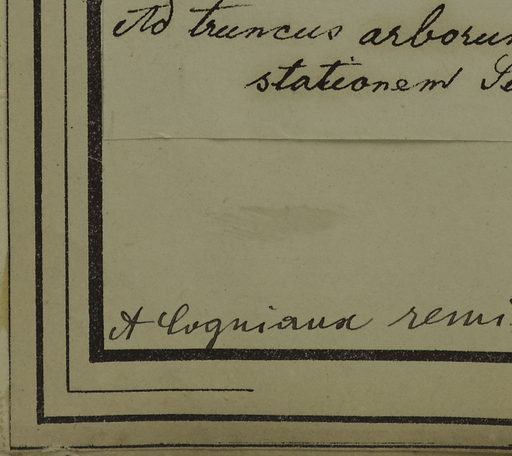 Ad truncus arborum
stationem Se
A Cogniaux remi